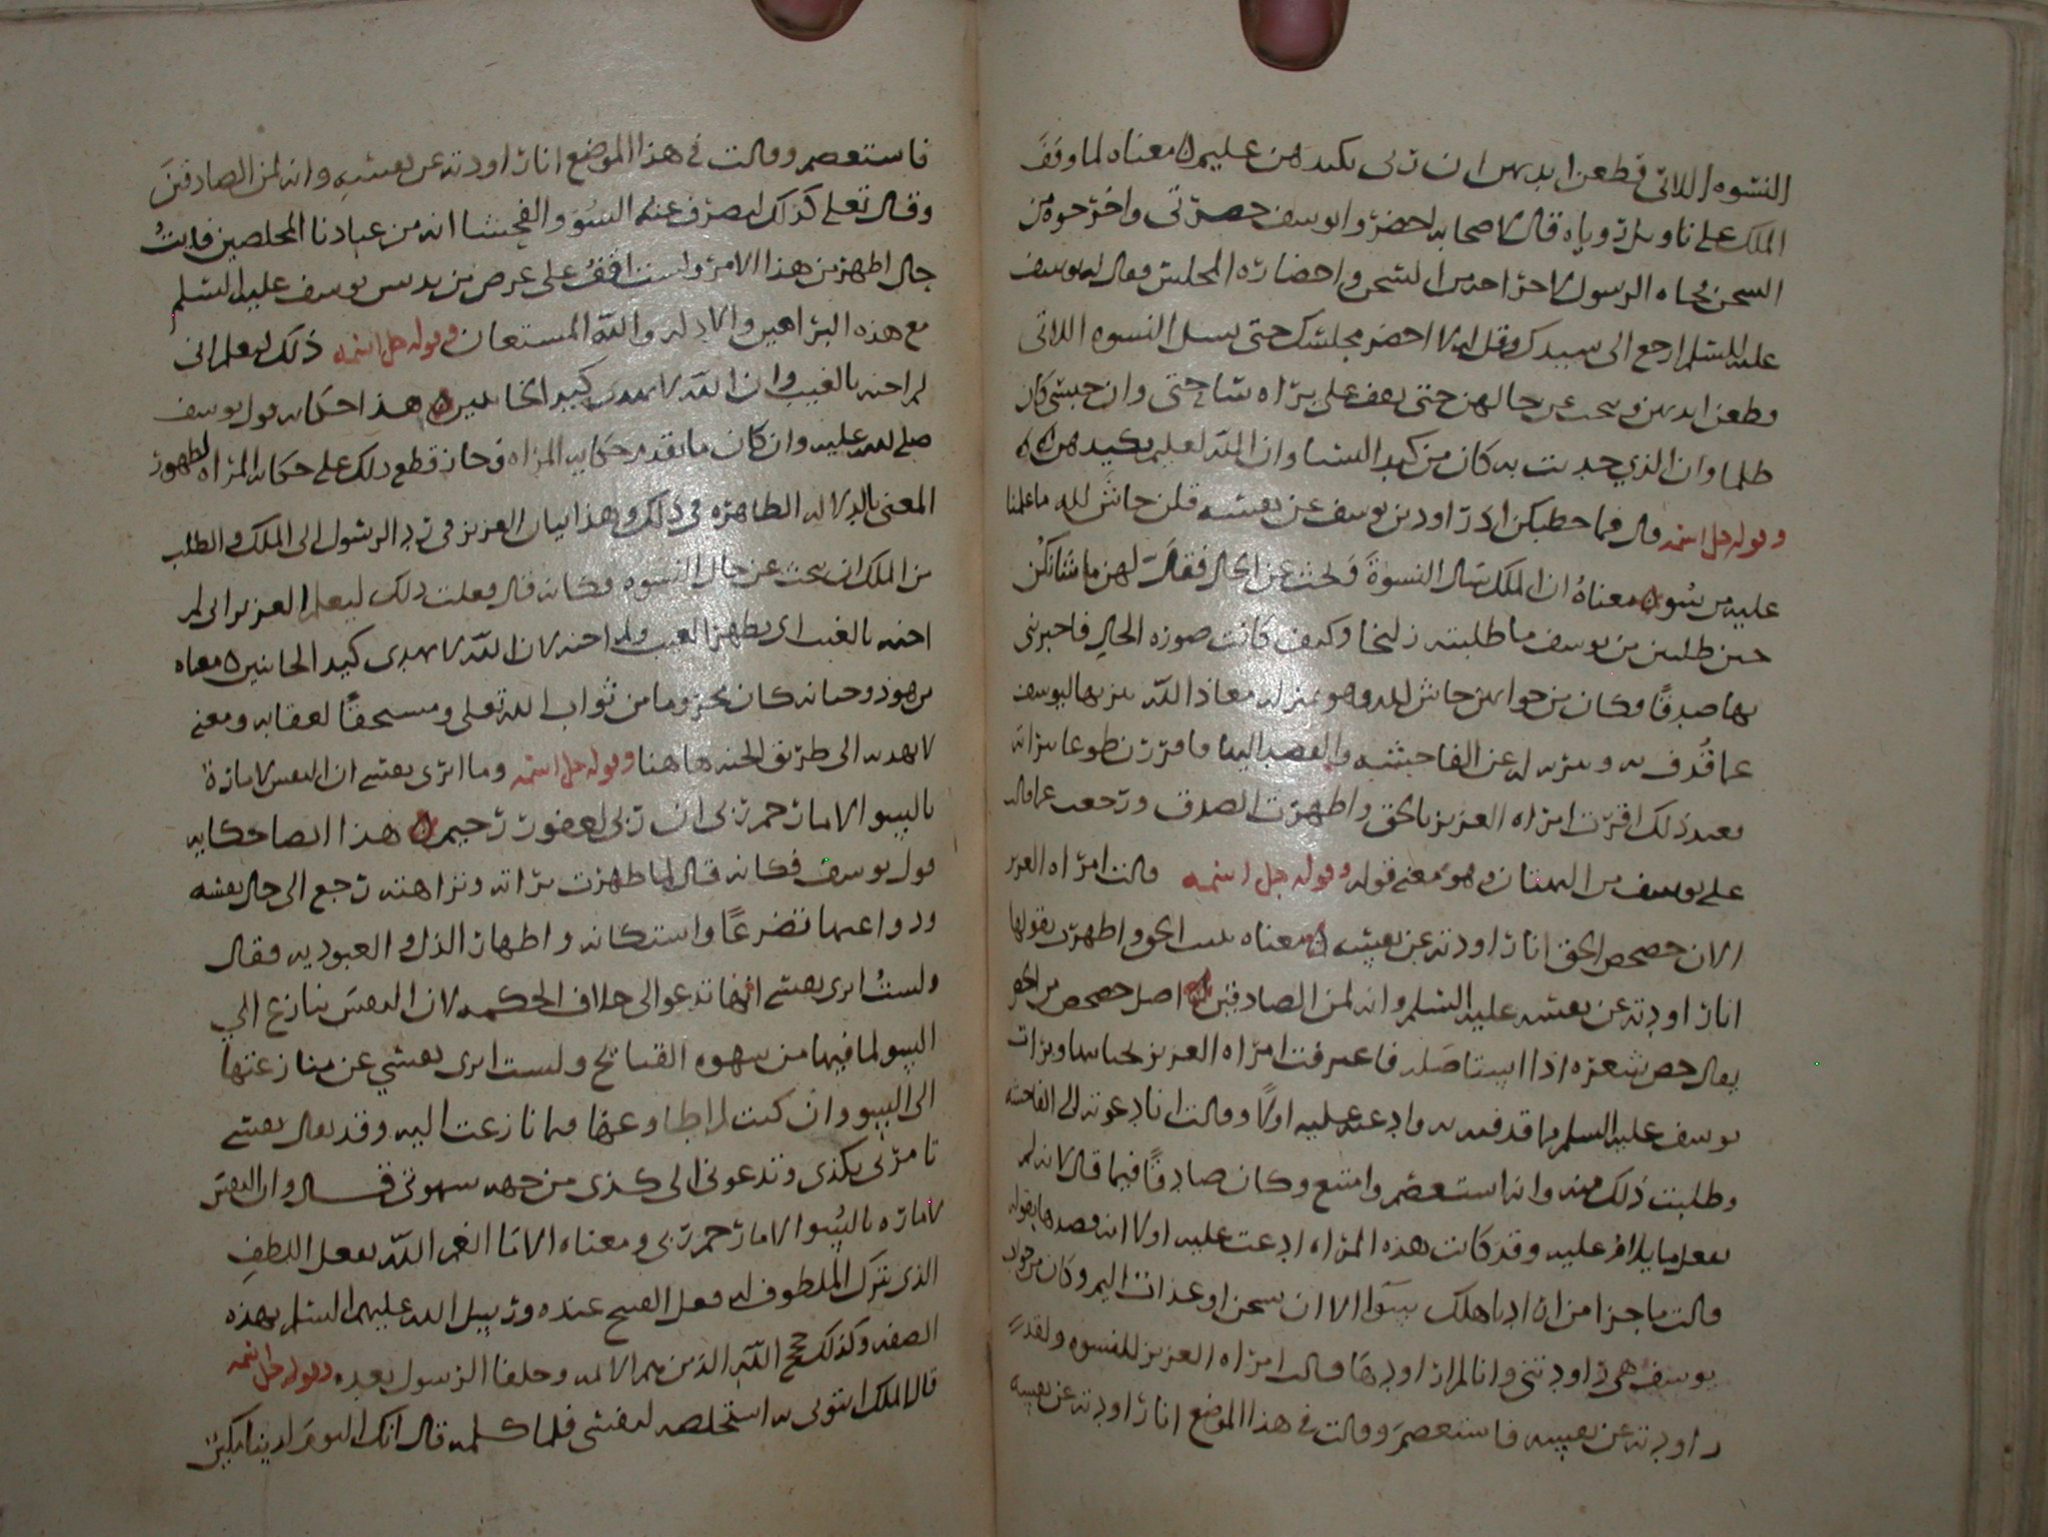 النسوه اللاتي قطعن ايديهن ان ربي بكيدهن عليم معناه لما وقف
الملك على تاويل روياه قال لاصحابه احضروا يوسف حضرتي واخرجوه من
السجن فجاه الرسول لاخراجه من السجن واحضاره المجلس فقال له يوسف
عليه السلم ارجع الى سيدك وقل له لا احضر مجلسك حتى يسل النسوه اللاتي
قطعن ايديهن وبحث عن حالهن حتى يقف على براه ساحتي وان حبسي كان
ظلما وان الذي حدثت به كان من كيد النسا وان الله لعليم بكيدهن
وقوله جل اسمه قال فما خطبكن اذ راودتن يوسف عن نفسه قلن حاش لله ما علمنا
عليه من سو معناه ان الملك سال النسوة وبحث عن الحال فقال لهن ما شانكن
حين طلبتن من يوسف ما طلبته زليخا وكيف كانت صوره الحال فاخبرنني
بها صدقا وكان من جوابهن حاش لله وهو بمنزله معاذ الله تنزيها ليوسف
عما قذف به وتنزيه له عن الفاحشه والقصد اليها فاقررن طوعا ببراته
فعند ذلك اقرت امراه العزيز بالحق واظهرت الصدق ورجعت عما قالت
على يوسف من البهتان وهو معنى قوله وقوله جل اسمه قالت امراه العزيز
الان حصحص الحق انا راودته عن نفسه معناه تبين الحق واظهرت بقولها
انا راودته عن نفسه عليه السلم وانه لمن الصادقين اصل حصحص من الحص
يقال حص شعره اذا استاصله فاعترفت امراه العزيز بخيانتها وبرات
يوسف عليه السلم مما قذفته به وادعته عليه اولا وقالت انا دعوته الى الفاحشه
وطلبت ذلك منه وانه استعصم وامتنع وكان صادقا فيما قال لانه لم
يفعل ما يلام عليه وقد كانت هذه المراه ادعت عليه اولا انه قصدها بقوله
قالت ما جزا من اراد باهلك سوا الا ان يسجن او عذاب اليم وكان من جواب
يوسف هي راودتني وانا لم اراودها وقالت امراه العزيز للنسوه ولقد
راودته عن نفسه فاستعصم وقالت في هذا الموضع انا راودته عن نفسه
فاستعصم وقالت في هذا الموضع انا راودته عن نفسه وانه لمن الصادقين
وقال تعلى كذلك لنصرف عنه السو والفحشا انه من عبادنا المخلصين فايت
حال اظهر من هذا الامر ولست اقف على غرض من يدنس يوسف عليه السلم
مع هذه البراهين والادله والله المستعان وقوله جل اسمه ذلك ليعلم اني
لم اخنه بالغيب وان الله لا يهدي كيد الخاينين هذا حكايه قول يوسف
صلى الله عليه وان كان ما تقدم حكايه المراه وجاز قطع ذلك على حكايه المراه لظهور
المعنى بالدلاله الظاهره في ذلك وهذا بيان العزيز في رد الرسول الى الملك والطلب
من الملك ان يبحث عن حال النسوه فكانه قال فعلت ذلك ليعلم العزيز اني لم
اخنه بالغيب اي بظهر الغيب ولم اخنه لان الله لا يهدي كيد الخاينين معناه
من هو ذو خيانه كان محروما من ثواب الله تعلى ومستحقا لعقابه ومعنى
لا يهديه الى طريق الجنه هاهنا وقوله جل اسمه وما ابرى نفسي ان النفس لامارة
بالسو الا ما رحم ربي ان ربي لغفور رحيم هذا ايضا حكايه
قول يوسف فكانه قال لما ظهرت براته ونزاهته رجع الى حال نفسه
ودواعيها تضرعا واستكانه واظهار الذل والعبوديه فقال
ولست ابرى نفسي انها تدعو الى خلاف الحكمه لان النفس تنازع الي
السو لما فيها من شهوه القبائح ولست ابرى نفسي عن منازعتها
الى السو وان كنت لم اطاوعها فيما نازعت اليه وقد يقال نفسي
تامرني بكذى وتدعوني الى كذى من جهه شهوتي قال وان النفس
لاماره بالسوا الا ما رحم ربي ومعناه الا ما انعم الله بفعل اللطف
الذي يترك الملطوف له فعل القبيح عنده ورسل الله عليهم السلم بهذه
الصفه وكذلك حجج الله الذين هم الايمه وخلفا الرسول بعده وقوله جل اسمه
قال الملك ايتوني به استخلصه لنفسي فلما كلمه قال انك اليوم لدينا مكين